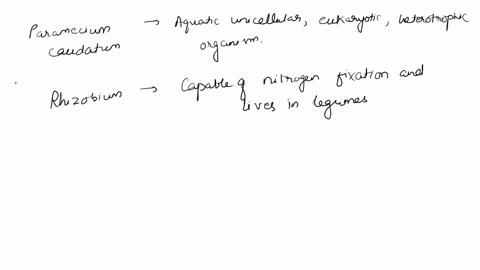 Paramecium caudatum → Aquatic unicellular, eukaryotic, heterotrophic organism.
Rhizobium → Capable of nitrogen fixation and lives in legumes